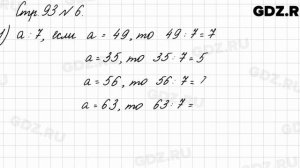 GDZ.RU
Стр. 93 № 6.
1) a : 7, если a = 49, то 49 : 7 = 7
a = 35, то 35 : 7 = 5
a = 56, то 56 : 7 = ?
a = 63, то 63 : 7 =